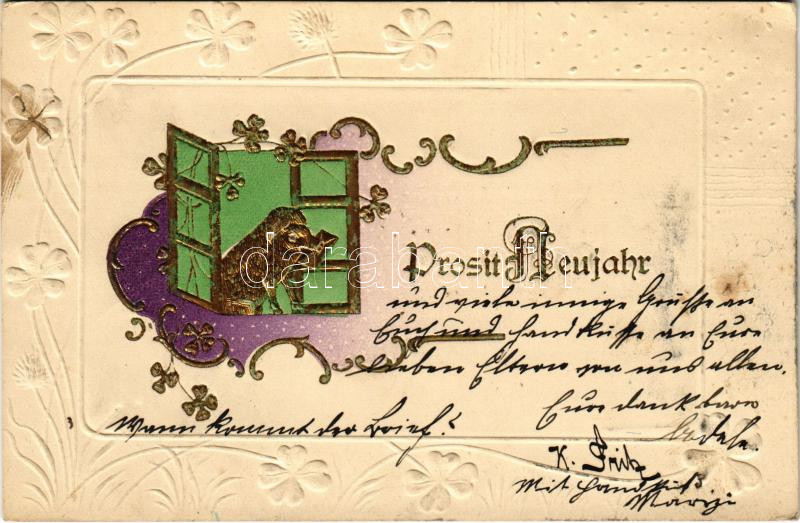 Prosit Neujahr
und viele innige Grüsse an
Euch und Handküsse an Eure
lieben Eltern von uns allen.
Eure dankbare
Wann kommt der Brief?
K. Fritz
Mit Handkuß
darabanth.com